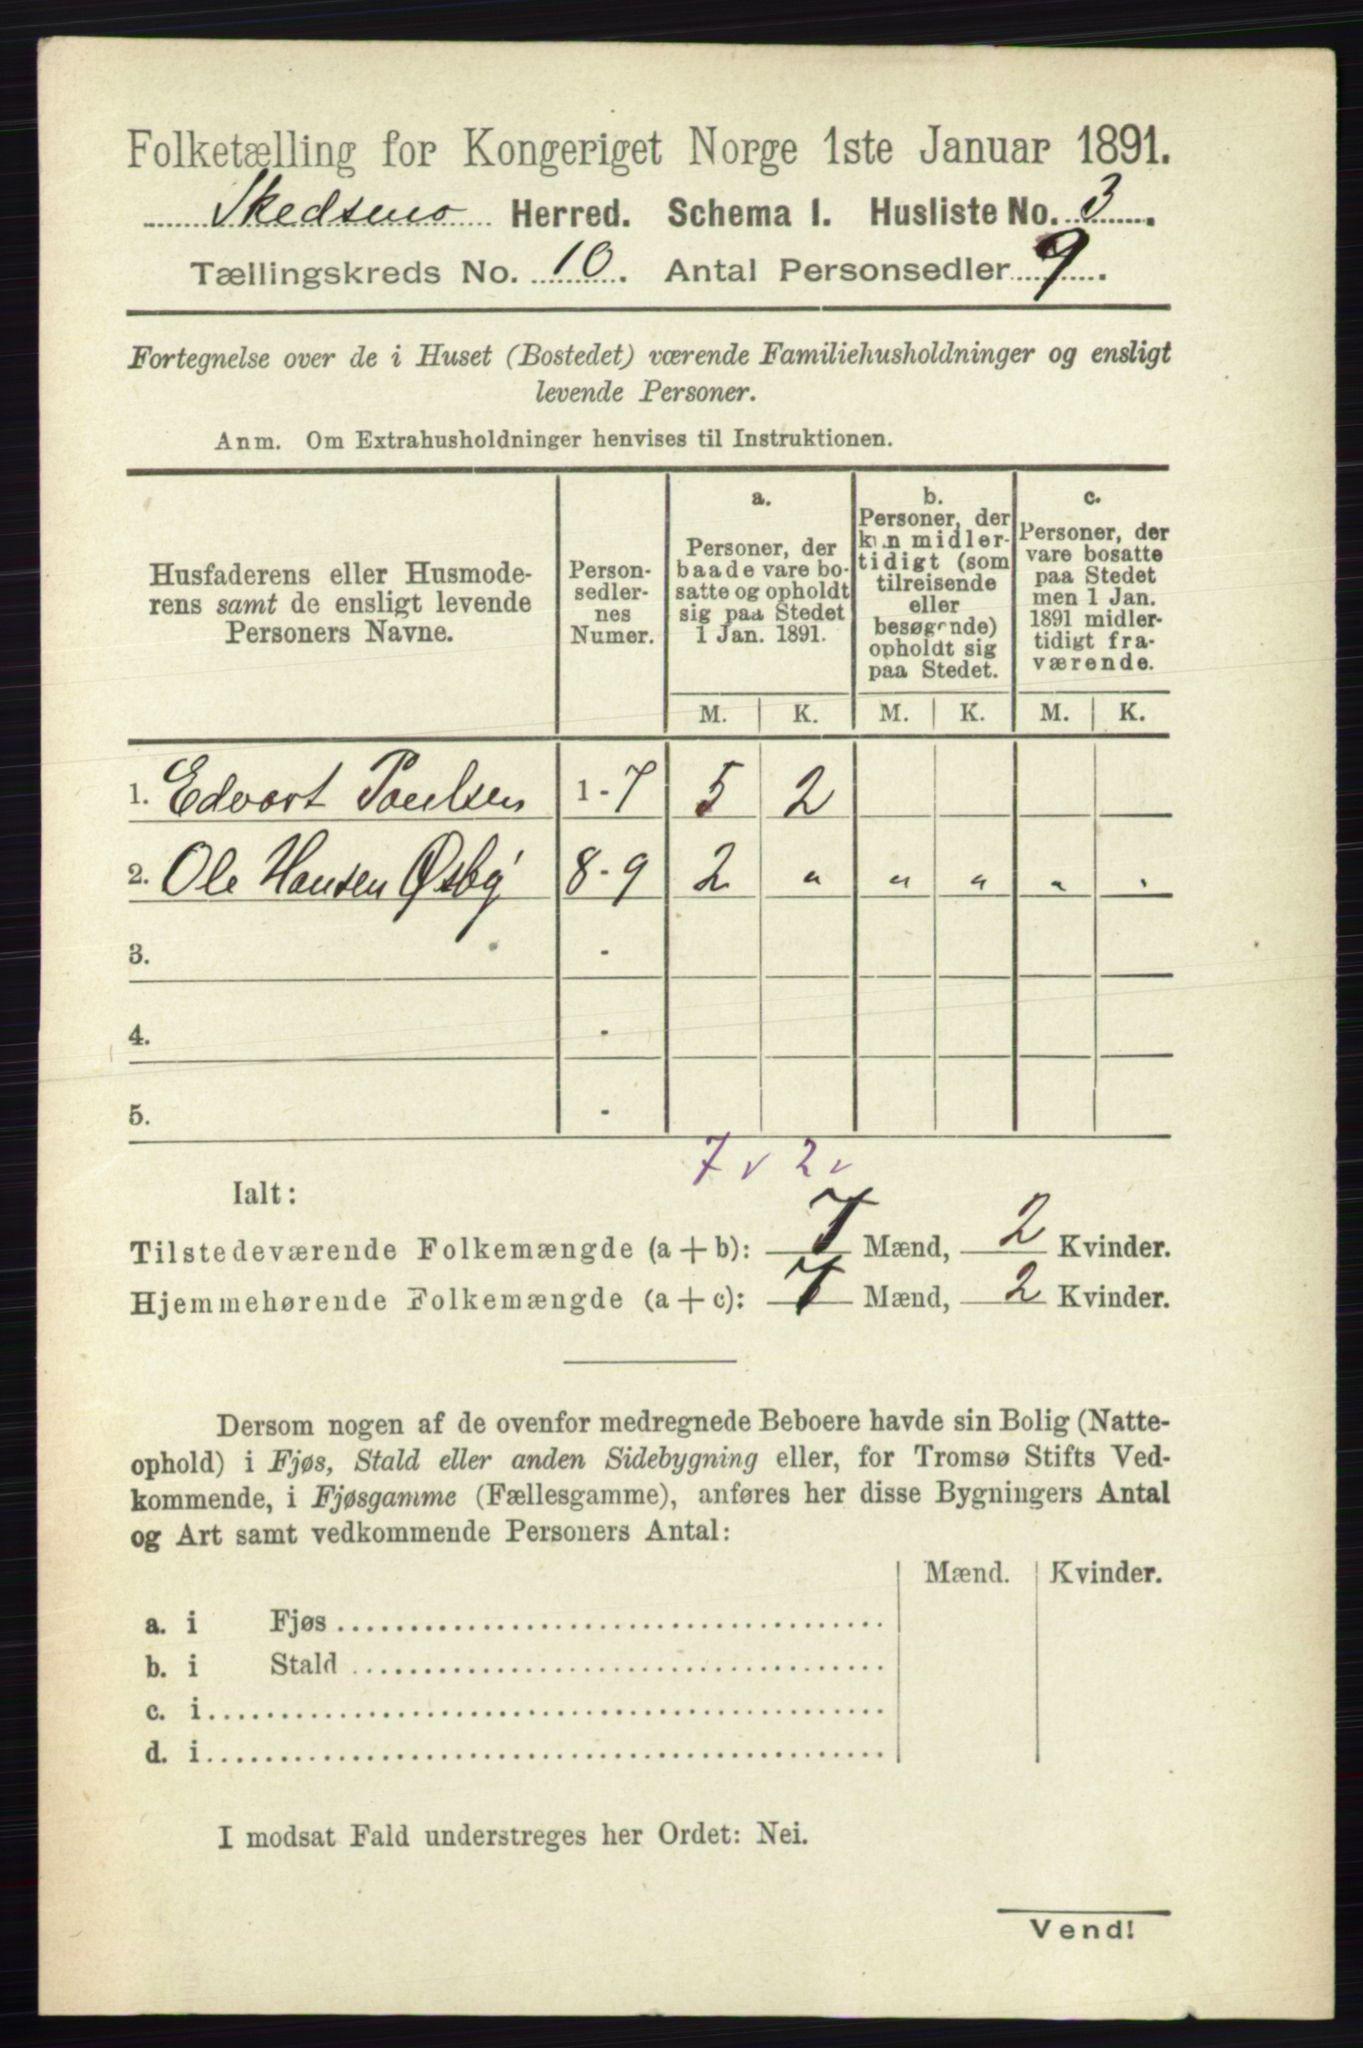 Folketælling for Kongeriget Norge 1ste Januar 1891.
Skedsmo Herred. Schema I. Husliste No. 3.
Tællingskreds No. 10. Antal Personsedler 9.
Fortegnelse over de i Huset (Bostedet) værende Familiehusholdninger og ensligt
levende Personer.
Anm. Om Extrahusholdninger henvises til Instruktionen.
Husfaderens eller Husmode-
rens samt de ensligt levende
Personers Navne.
Person-
sedler-
nes
Numer.
a.
Personer, der
baade vare bo-
satte og opholdt
sig paa Stedet
1 Jan. 1891.
b.
Personer, der
kun midler-
tidigt (som
tilreisende
eller
besøgende)
opholdt sig
paa Stedet.
c.
Personer, der
vare bosatte
paa Stedet
men 1 Jan.
1891 midler-
tidigt fra-
værende.
M. K. M. K. M. K.
1. Edvart Paulsen 1-7 5 2
2. Ole Hansen Øsby 8-9 2 " " " " "
3. -
4. -
5. -
7 v 2 v
Ialt:
Tilstedeværende Folkemængde (a+b): 7 Mænd, 2 Kvinder.
Hjemmehørende Folkemængde (a+c): 7 Mænd, 2 Kvinder.
Dersom nogen af de ovenfor medregnede Beboere havde sin Bolig (Natte-
ophold) i Fjøs, Stald eller anden Sidebygning eller, for Tromsø Stifts Ved-
kommende, i Fjøsgamme (Fællesgamme), anføres her disse Bygningers Antal
og Art samt vedkommende Personers Antal:
Mænd. Kvinder.
a. i Fjøs
b. i Stald
c. i
d. i
I modsat Fald understreges her Ordet: Nei.
Vend!